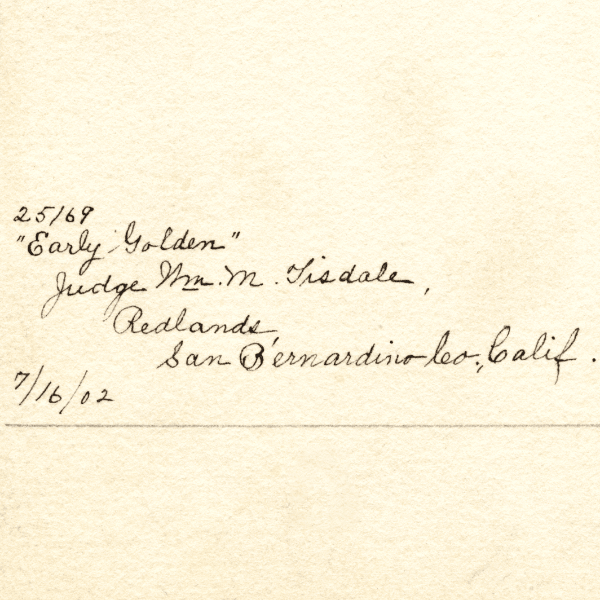 25169
"Early Golden"
Judge Wm. M. Tisdale,
Redlands,
San Bernardino Co., Calif.
7/16/02